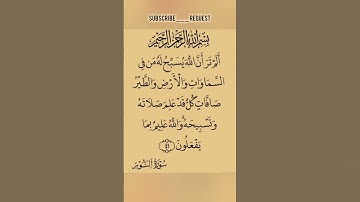 SUBSCRIBE___REQUEST
بِسْمِ اللهِ الرَّحْمٰنِ الرَّحِيْمِ
أَلَمْ تَرَ أَنَّ اللهَ يُسَبِّحُ لَهُ مَن فِي
السَّمَاوَاتِ وَالْأَرْضِ وَالطَّيْرُ
صَافَّاتٍ كُلٌّ قَدْ عَلِمَ صَلَاتَهُ
وَتَسْبِيحَهُ وَاللهُ عَلِيمٌ بِمَا
يَفْعَلُونَ ٤١
سُوْرَةُ النُّوْر